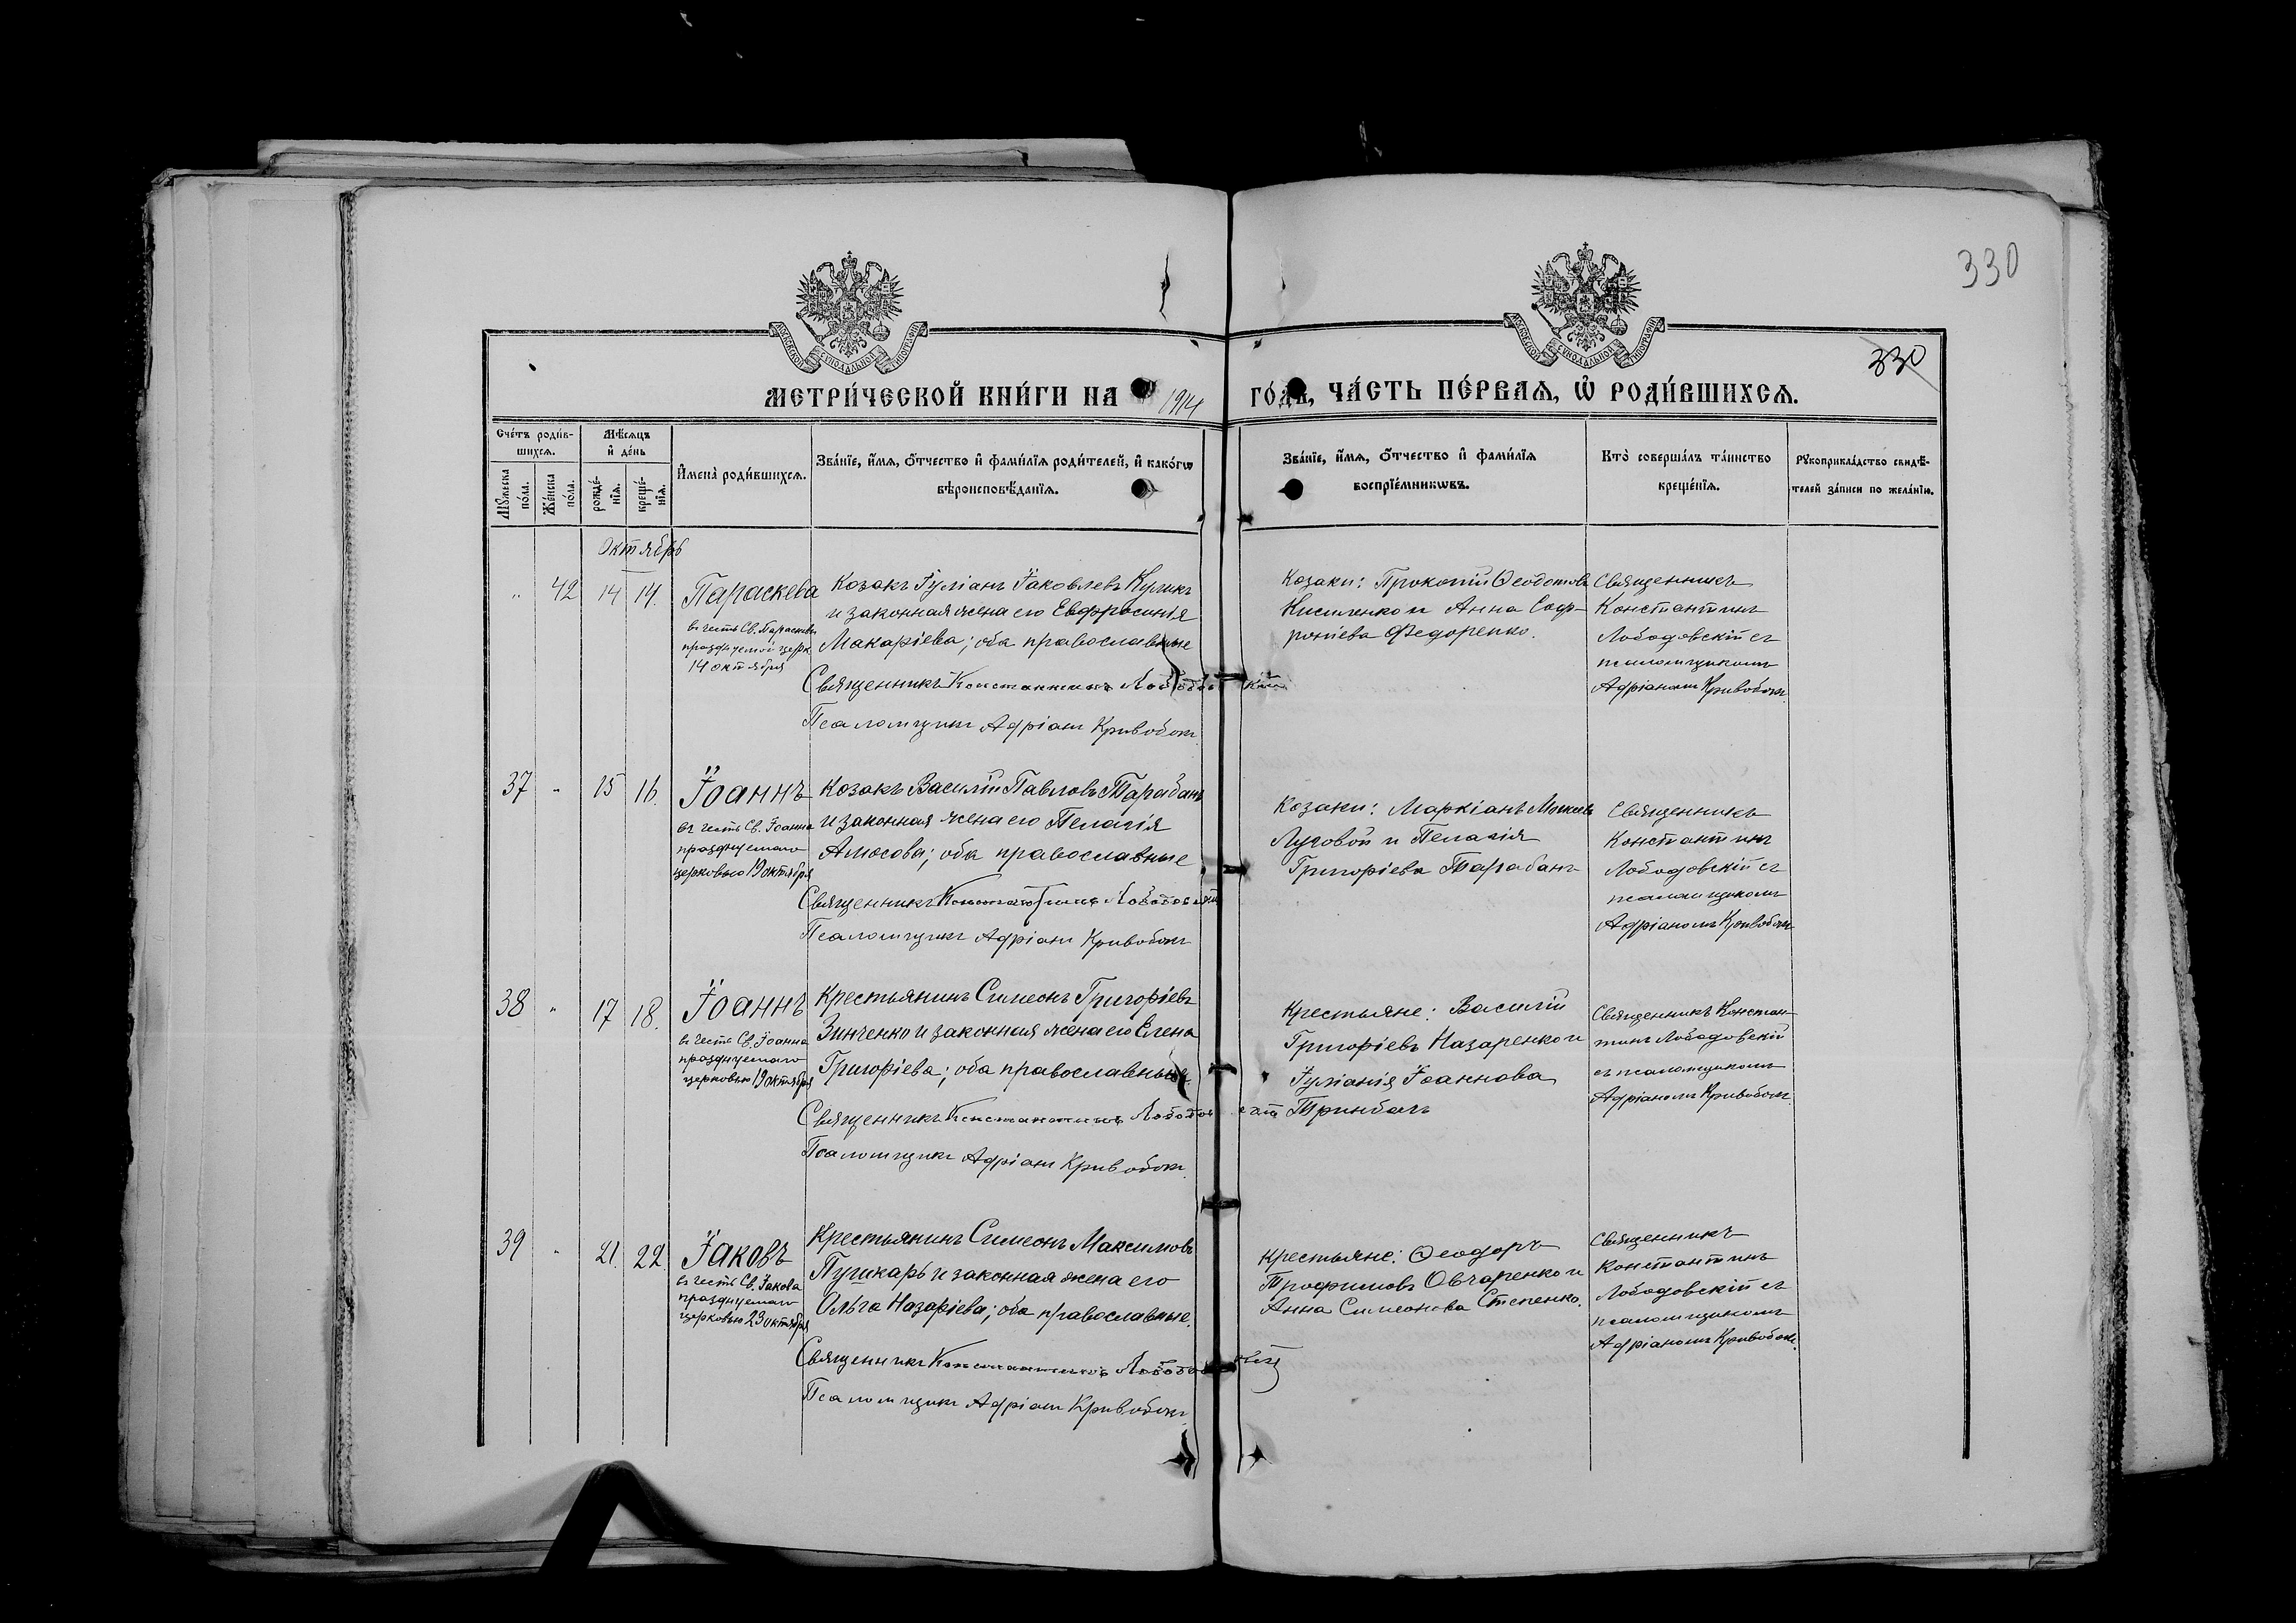 330
330
МОСКОВСКОЙ СУНОДАЛЬНОЙ ТИПОГРАФІИ
МОСКОВСКОЙ СУНОДАЛЬНОЙ ТИПОГРАФІИ
МЕТРИ́ЧЕСКОЙ КНИ́ГИ НА 1914 ГО́ДЪ, ЧА́СТЬ ПЕ́РВАѦ, Ѡ҆ РОДИ́ВШИХСѦ.
Сче́тъ роди́в-
шихсѧ.
Мѣ́сѧцъ
и҆ де́нь
Мꙋ́жеска
по́ла.
Же́нска
по́ла.
рожде́-
нїѧ.
креще́-
нїѧ.
И҆мена̀ роди́вшихсѧ.
Зва́нїе, и҆́мѧ, ѻ҆́тчество и҆ фами́лїѧ роди́телей, и҆ како́гѡ
вѣроисповѣ́данїѧ.
Зва́нїе, и҆́мѧ, ѻ҆́тчество и҆ фами́лїѧ
воспрїе́мникѡвъ.
Кто̀ соверша́лъ та́инство
креще́нїѧ.
Рꙋкоприкла́дство свидѣ́-
телей за́писи по жела́нїю.
Октябрь
" 42 14 14.
Параскева
въ честь Св. Параскевы
празднуемой церк.
14 октября
Козакъ Іуліанъ Іаковлевъ Куликъ
и законная жена его Евфросинія
Макаріева; оба православные
Священникъ Константинъ Лободовскій
Псаломщикъ Адріанъ Кривобокъ
Козаки: Прокопій Ѳеодотовъ
Кисиленко и Анна Соф-
роніева Федоренко.
Священникъ
Константинъ
Лободовскій съ
псаломщикомъ
Адріаномъ Кривобокъ.
37 " 15 16.
Іоаннъ
въ честь Св. Іоанна
празднуемаго
церковью 19 октября
Козакъ Василій Павловъ Тарабанъ
и законная жена его Пелагія
Амосова; оба православные
Священникъ Константинъ Лободовскій
Псаломщикъ Адріанъ Кривобокъ
Козаки: Маркіанъ
Луговой и Пелагія
Григоріева Тарабанъ
Священникъ
Константинъ
Лободовскій съ
псаломщикомъ
Адріаномъ Кривобокъ
38 " 17 18.
Іоаннъ
въ честь Св. Іоанна
празднуемаго
церковью 19 октября
Крестьянинъ Симеонъ Григоріевъ
Зинченко и законная жена его Елена
Григоріева; оба православные
Священникъ Константинъ Лободовскій
Псаломщикъ Адріанъ Кривобокъ.
Крестьяне: Василій
Григоріевъ Назаренко и
Іуліанія Іоаннова
Тринбачъ
Священникъ Констан-
тинъ Лободовскій
съ псаломщикомъ
Адріаномъ Кривобокъ.
39 " 21. 22
Іаковъ
въ честь Св. Іакова
празднуемаго
церковью 23 октября
Крестьянинъ Симеонъ Максимовъ
Пушкарь и законная жена его
Ольга Назаріева; оба православные.
Священникъ Константинъ Лободовскій
Псаломщикъ Адріанъ Кривобокъ.
Крестьяне: Ѳеодоръ
Трофимовъ Овчаренко и
Анна Симеонова Степенко.
Священникъ
Константинъ
Лободовскій съ
псаломщикомъ
Адріаномъ Кривобокъ.